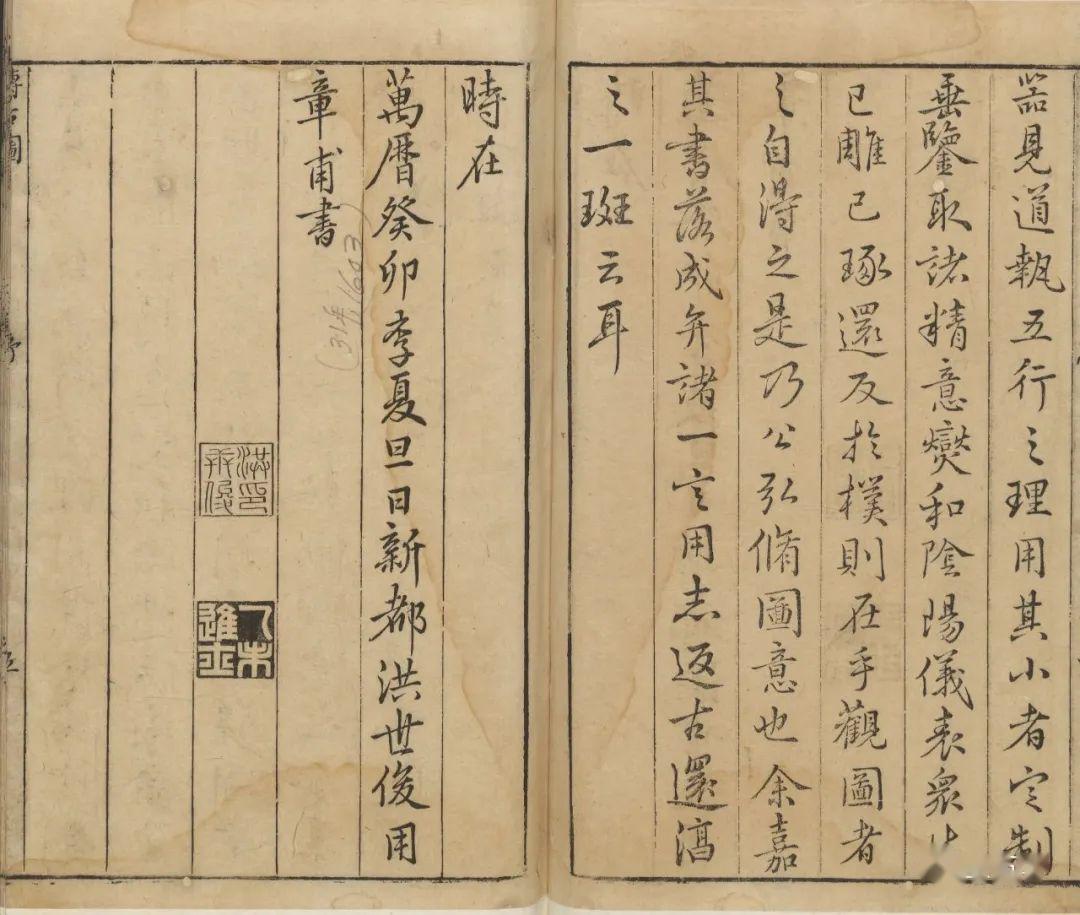 器見道執五行之理用其小者定制
垂鑒取諸精意爕和陰陽儀表衆
已雕已琢還反於樸則在乎觀圖者
之自得之是乃公弘脩圖意也余嘉
其書落成弁諸一言用志返古還淳
之一斑云耳
時在
萬曆癸卯季夏旦日新都洪世俊用
章甫書
(31年1603)
洪世俊印
進士